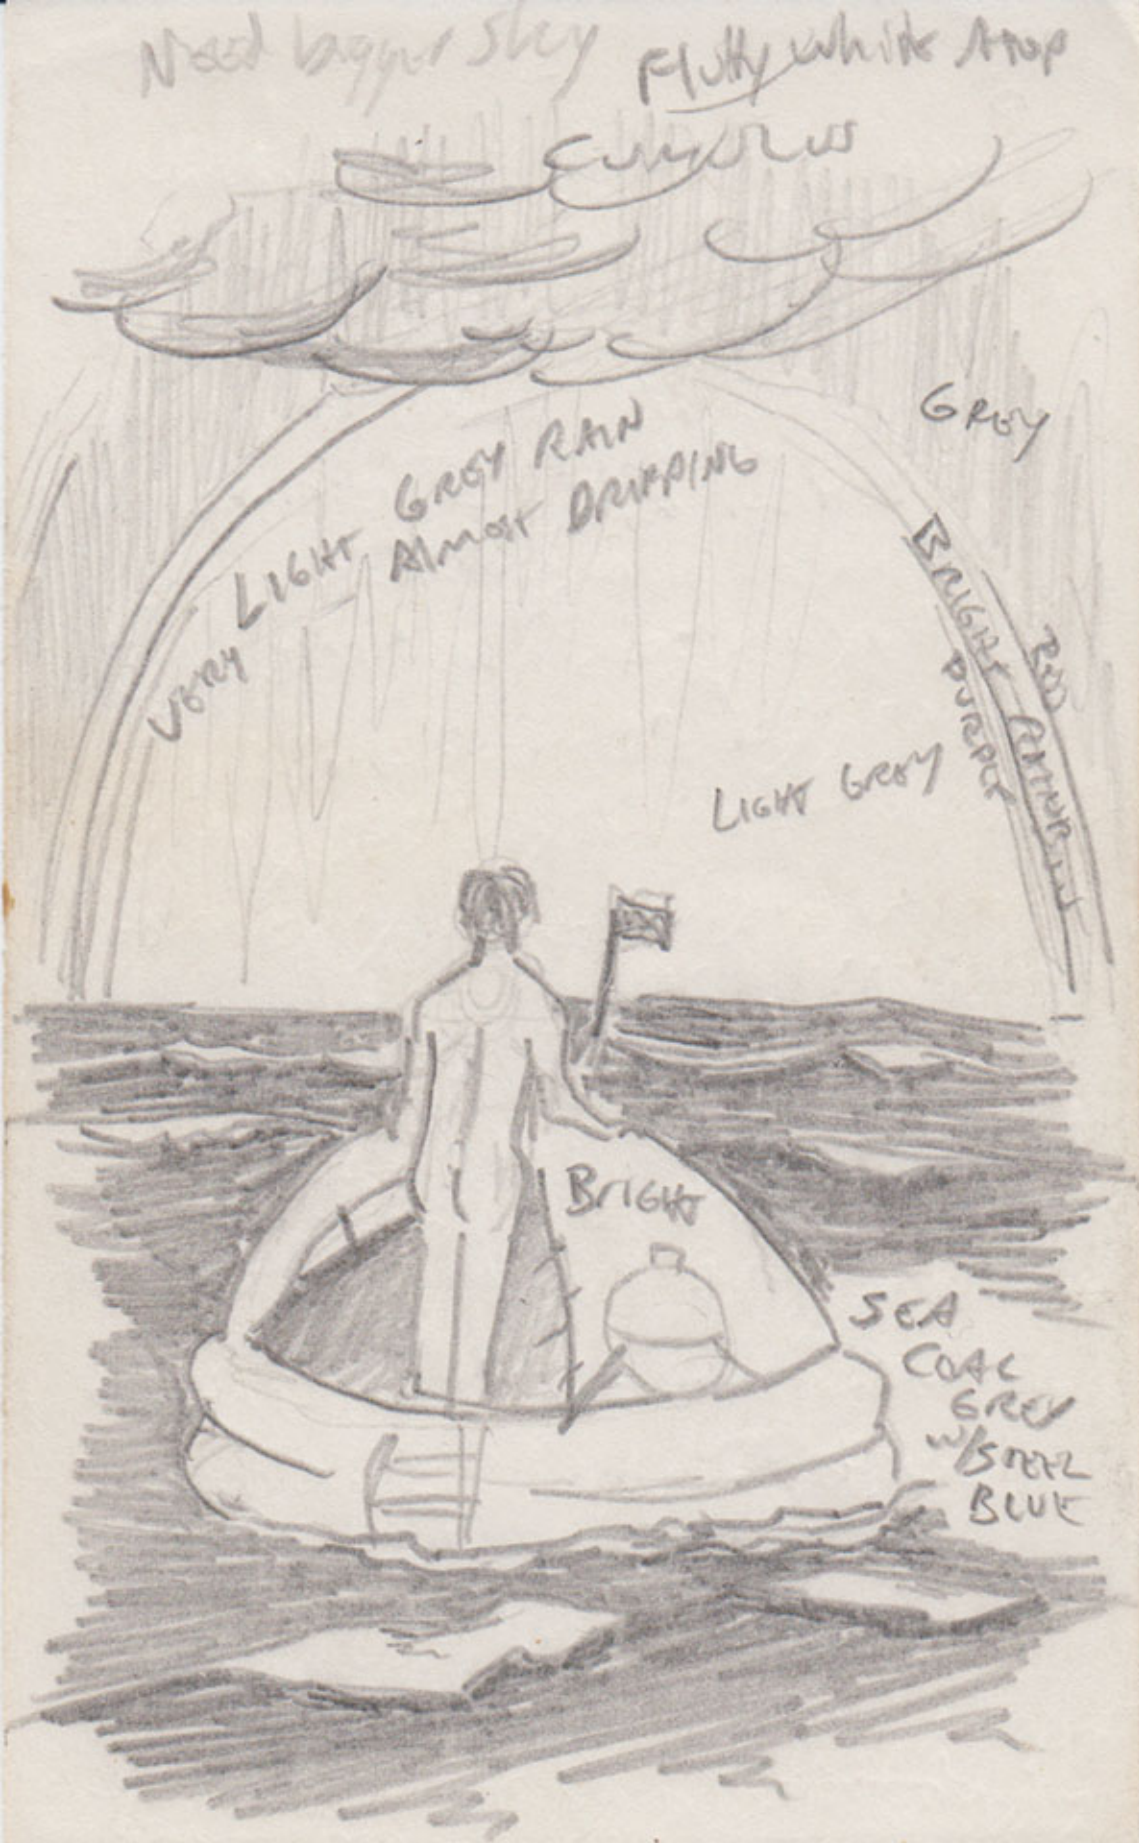 Need bigger sky
Fluffy white atop
Cumulus
GREY
VERY LIGHT GREY RAIN
Almost DRIPPING
BRIGHT RAINBOW
RED
PURPLE
LIGHT GREY
BRIGHT
SEA
COAL
GREY
w/STEEL
BLUE